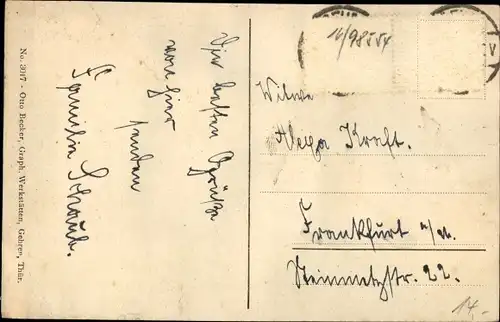 No. 3917 - Otto Becker, Graph. Werkstätten, Gehren, Thür.
Die besten Grüße
von hier
senden
Familie Schaub.
11/98554
Witwe
Kraft.
Frankfurt a/M.
Steinmetzstr. 22.
14.-